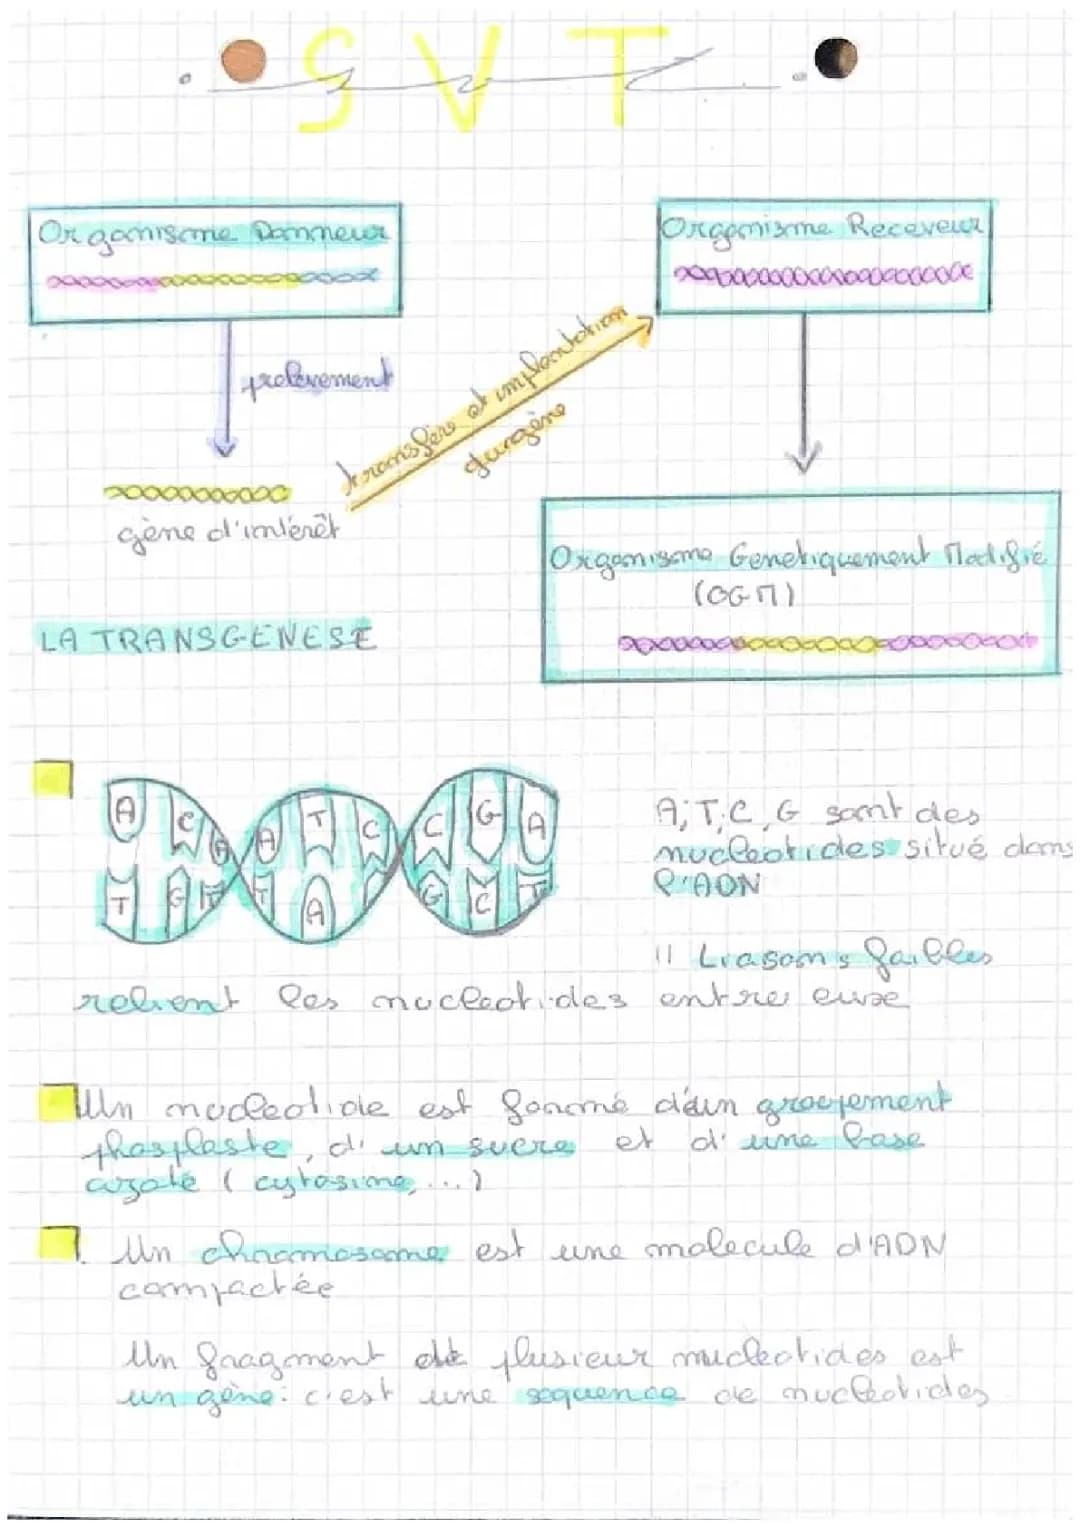 SVT
Organisme Donneur
Organisme Receveur
prelevement
transfère et implantation
du gène
gène d'intérêt
Organisme Genetiquement Modifié
(OGM)
LA TRANSGENESE
A C A A T C C G A
T G T T A G C T
A, T, C, G sont des
nucleotides situé dans
l'ADN
11 Liasons faibles
relient les nucleotides entre euxe
Un nucleotide est formé d'un groupement
phosphaste, d' un sucre et d' une base
azoté (cytosine, ...)
1. Un chromosome est une molecule d'ADN
compactée
Un fragment de plusieur nucleotides est
un gène: c'est une sequence de nucleotides